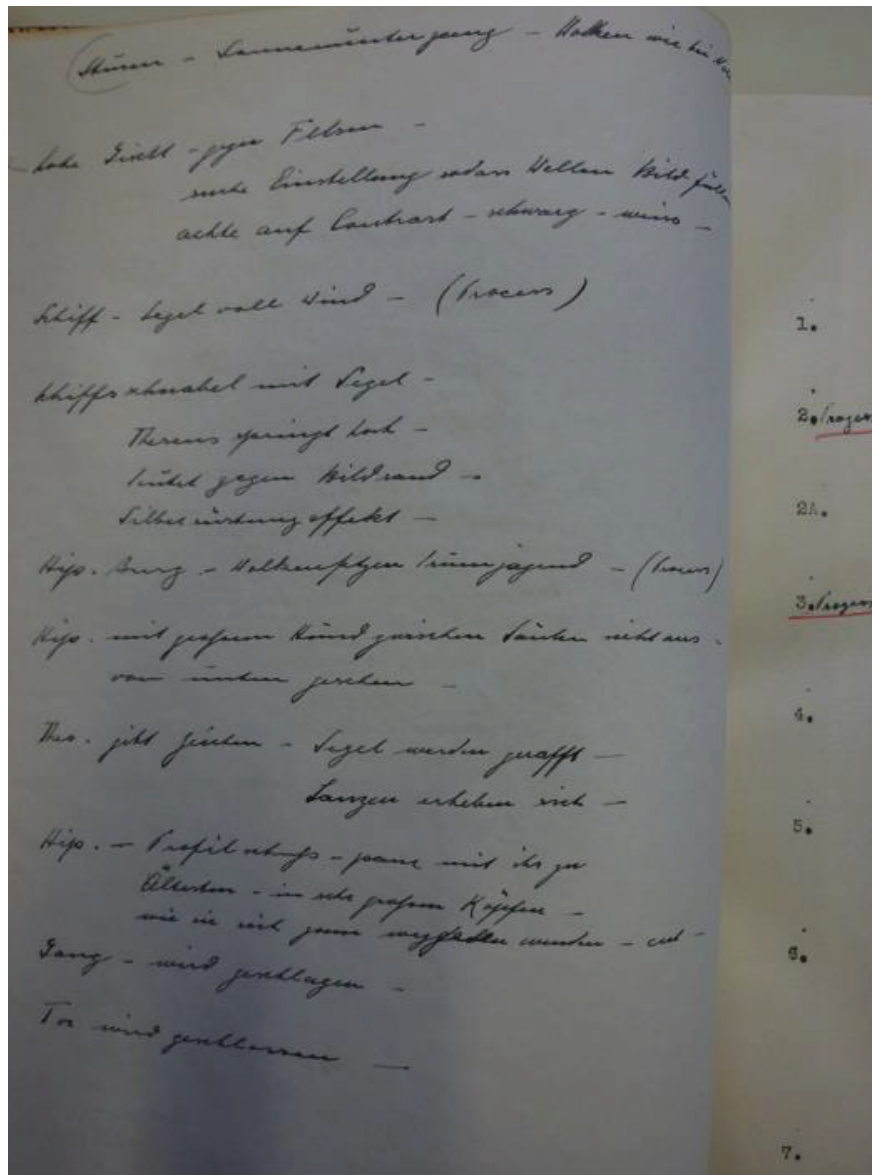 (Sturm - Sonnenuntergang - Wolken wie bei
hohe Gischt - gegen Felsen -
suche Einstellung sodass Wellen Bild
achte auf Contrast - schwarz - weiss -
Schiff - Segel voll Wind - (Process)
Schiffsschnabel mit Segel -
Theseus springt hoch -
gegen Bildrand -
effekt -
Hip. Burg - Wolkenfetzen - (Process)
Hip. mit grossem Hund zwischen Säulen sieht aus -
von unten gesehen -
Thes. gibt Zeichen - Segel werden gerafft -
Lanzen erheben sich -
Hip. - Profil - panne mit ihr zu
Ältesten - in sehr grossen Köpfen -
wie sie sich zum wenden - cut -
Gong - wird geschlagen -
Tor wird geschlossen -
1.
2.
2A.
3.
4.
5.
6.
7.